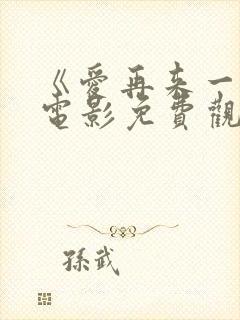 《愛再来一
電影免費觀
孫武